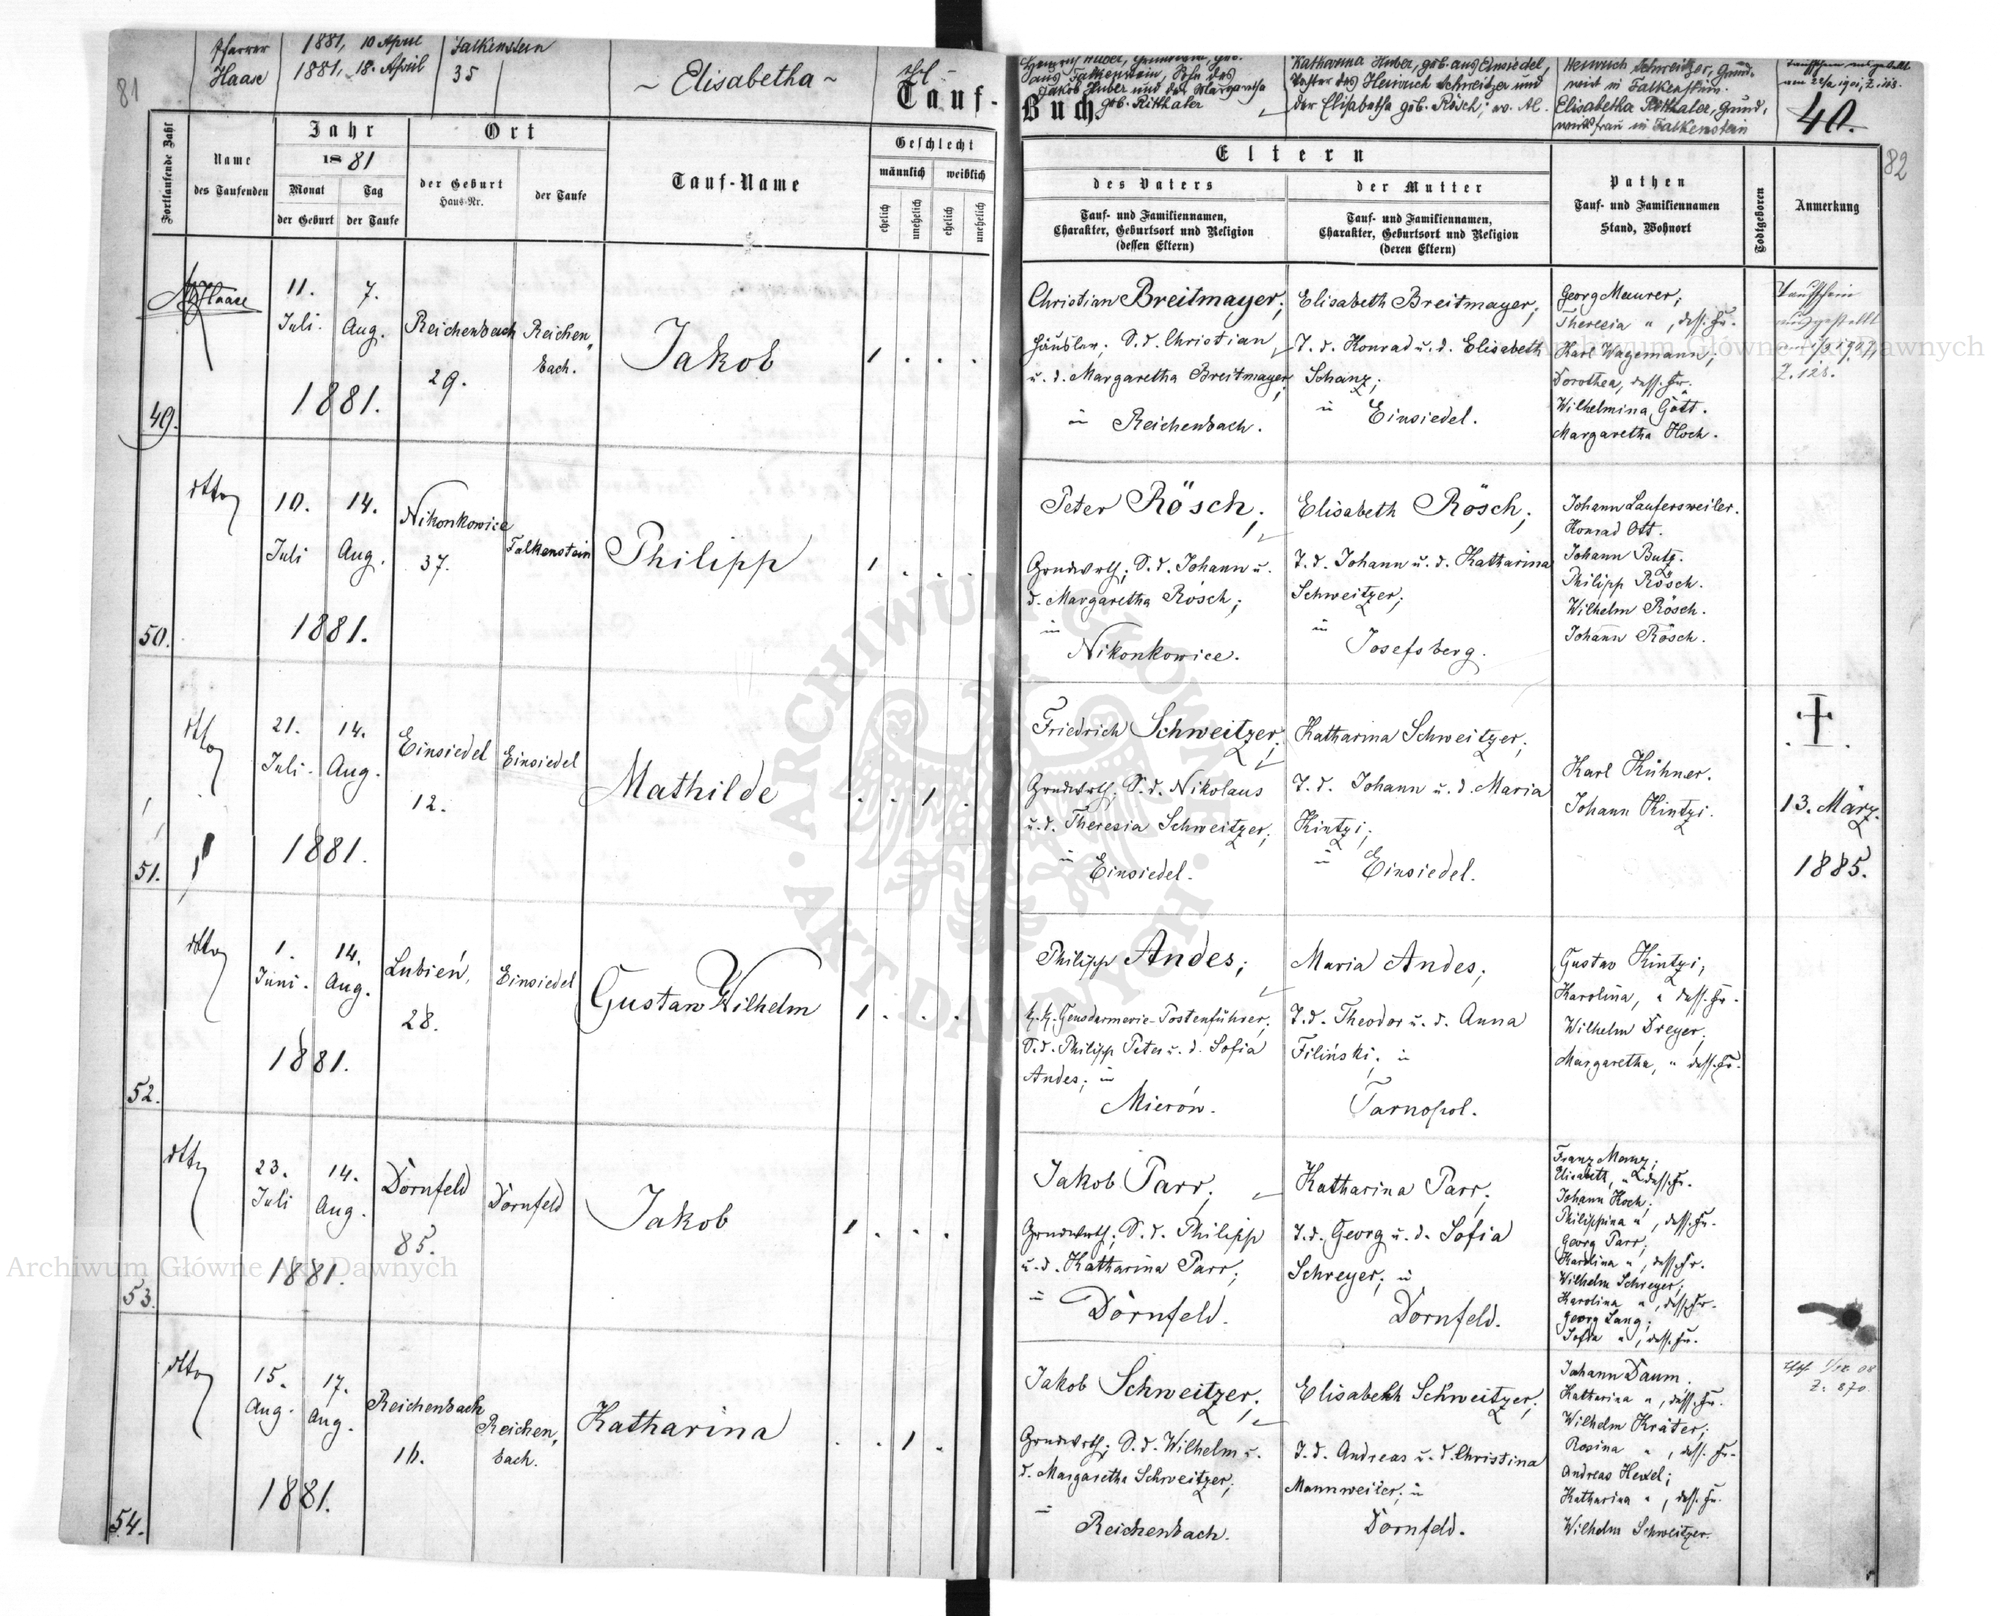 81
Pfarrer
Haase
1881, 10 April
1881, 18. April
Falkenstein
35
~ Elisabetha ~
Tauf-
Fortlaufende Zahl
Name
des Taufenden
Jahr
1881
Monat
der Geburt
Tag
der Taufe
Ort
der Geburt
Haus-Nr.
der Taufe
Tauf-Name
Geschlecht
männlich
weiblich
ehelich
unehelich
ehelich
unehelich
49.
Haase
11.
Juli.
7.
Aug.
1881.
Reichenbach
29.
Reichen„
bach.
Jakob
1 . . .
50.
dtto
10.
Juli
14.
Aug.
1881.
Nikonkowice
37.
Falkenstein
Philipp
1 . . .
51.
dtto
21.
Juli.
14.
Aug.
1881.
Einsiedel
12.
Einsiedel
Mathilde
. . 1 .
52.
dtto
1.
Juni.
14.
Aug.
1881.
Lubień,
28.
Einsiedel
Gustav Wilhelm
1 . . .
53.
dtto
23.
Juli
14.
Aug.
1881.
Dornfeld
85.
Dornfeld
Jakob
1 . . .
54.
dtto
15.
Aug.
17.
Aug.
1881.
Reichenbach
16.
Reichen„
bach.
Katharina
. . 1 .
82
aus Falkenstein, Sohn des
Jakob Huber und der Margaretha
geb. Ritthaler
Katharina Huber, geb. aus Einsiedel,
Tochter des Heinrich Schweitzer und
der Elisabetha geb. Rösch;
Heinrich Schweitzer, Grund-
wirt in Falkenstein.
Elisabetha Ritthaler, Grund,
wirtsfrau in Falkenstein
Buch
40.
Eltern
des Vaters
Tauf- und Familiennamen,
Charakter, Geburtsort und Religion
(dessen Eltern)
der Mutter
Tauf- und Familiennamen,
Charakter, Geburtsort und Religion
(deren Eltern)
Pathen
Tauf- und Familiennamen
Stand, Wohnort
Todtgeboren
Anmerkung
Christian Breitmayer;
Häusler; S. d. Christian
u. d. Margaretha Breitmayer;
in Reichenbach.
Elisabeth Breitmayer;
T. d. Konrad u. d. Elisabeth
Schanz;
in Einsiedel.
Georg Maurer;
Theresia „, dess. Fr.
Karl Wagemann;
Dorothea, dess. Fr.
Wilhelmina Gött.
Margaretha Hoch.
Taufschein
ausgestellt
Z. 128.
Peter Rösch;
Grundwrth; S. d. Johann u.
d. Margaretha Rösch;
in
Nikonkowice.
Elisabeth Rösch;
T. d. Johann u. d. Katharina
Schweitzer;
in
Josefsberg.
Johann Laufersweiler.
Konrad Ott.
Johann Butz.
Philipp Rösch.
Wilhelm Rösch.
Johann Rösch.
Friedrich Schweitzer;
Grundwrth; S. d. Nikolaus
u. d. Theresia Schweitzer;
in Einsiedel.
Katharina Schweitzer;
T. d. Johann u. d. Maria
Kintzi;
in Einsiedel.
Karl Kühner.
Johann Kintzi.
13. März
1885.
Philipp Andes;
k. k. Gensdarmerie-Postenführer;
S. d. Philipp Peter u. d. Sofia
Andes; in
Mierów.
Maria Andes;
T. d. Theodor u. d. Anna
Filiński; in
Tarnopol.
Gustav Kintzi;
Karolina, „ dess. Fr.
Wilhelm Dreyer;
Margaretha, „ dess. Fr.
Jakob Parr;
Grundwrth; S. d. Philipp
u. d. Katharina Parr;
in Dornfeld.
Katharina Parr;
T. d. Georg u. d. Sofia
Schreyer; in
Dornfeld.
Franz Manz;
Elisabeth, „ dess. Fr.
Johann Hoch;
Philippina „, dess. Fr.
Georg Parr;
Karolina „, dess. Fr.
Wilhelm Schreyer;
Karolina „, dess. Fr.
Georg Lang;
Sofia „, dess. Fr.
Jakob Schweitzer;
Grundwrth; S. d. Wilhelm u.
d. Margaretha Schweitzer;
in
Reichenbach.
Elisabeth Schweitzer;
T. d. Andreas u. d. Christina
Mannweiler; in
Dornfeld.
Johann Daum.
Katharina „, dess. Fr.
Wilhelm Kräter;
Rosina „, dess. Fr.
Andreas Hexel;
Katharina „, dess. Fr.
Wilhelm Schweitzer.
Z. 870.
Archiwum Główne Akt Dawnych
Archiwum Główne Akt Dawnych
ARCHIWUM GŁÓWNE · AKT DAWNYCH ·